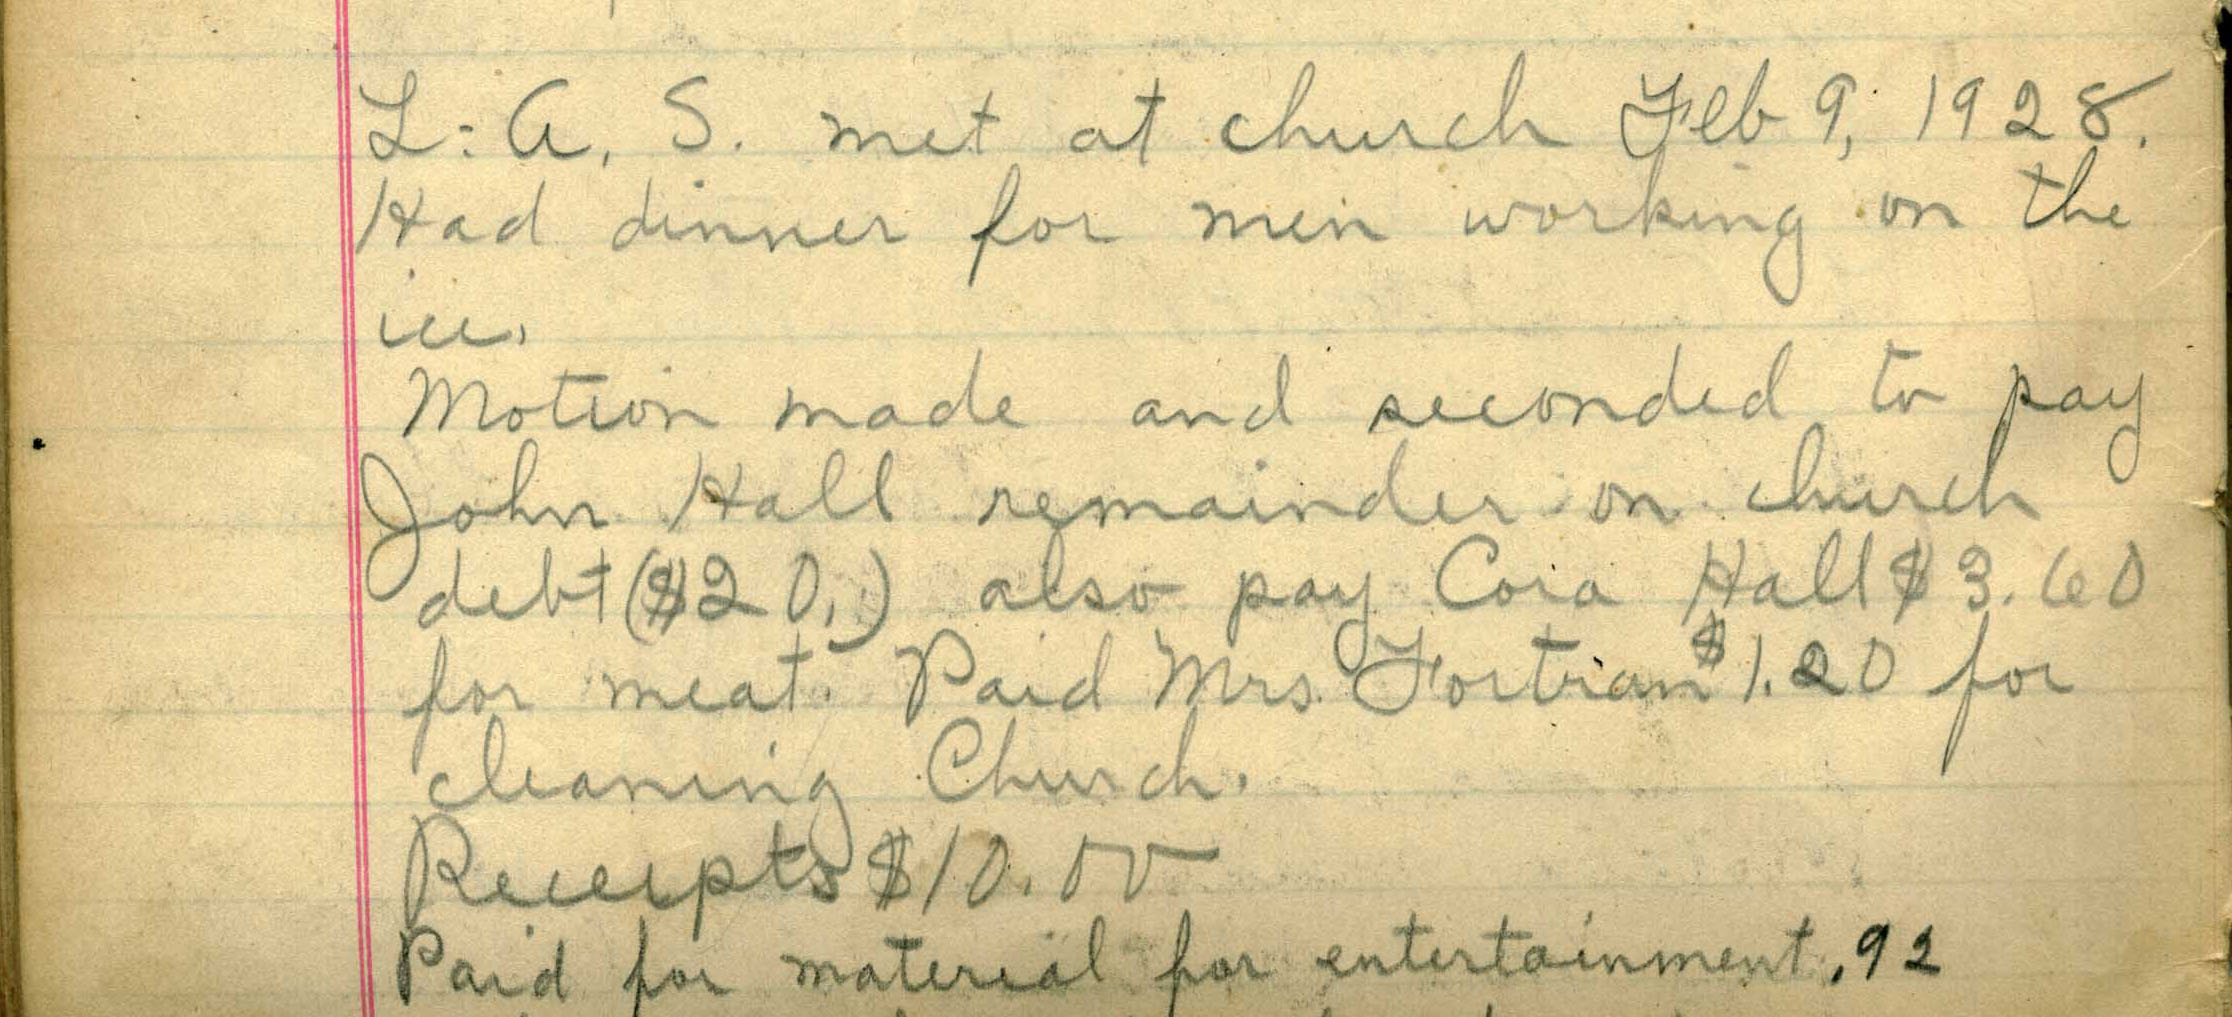 L. A. S. met at church Feb 9, 1928.
Had dinner for men working on the
ice.
Motion made and seconded to pay
John Hall remainder on church
debt ($20.) also pay Cora Hall $3.60
for meat. Paid Mrs. Fortram $1.20 for
cleaning Church.
Receipts $10.00
Paid for material for entertainment .92